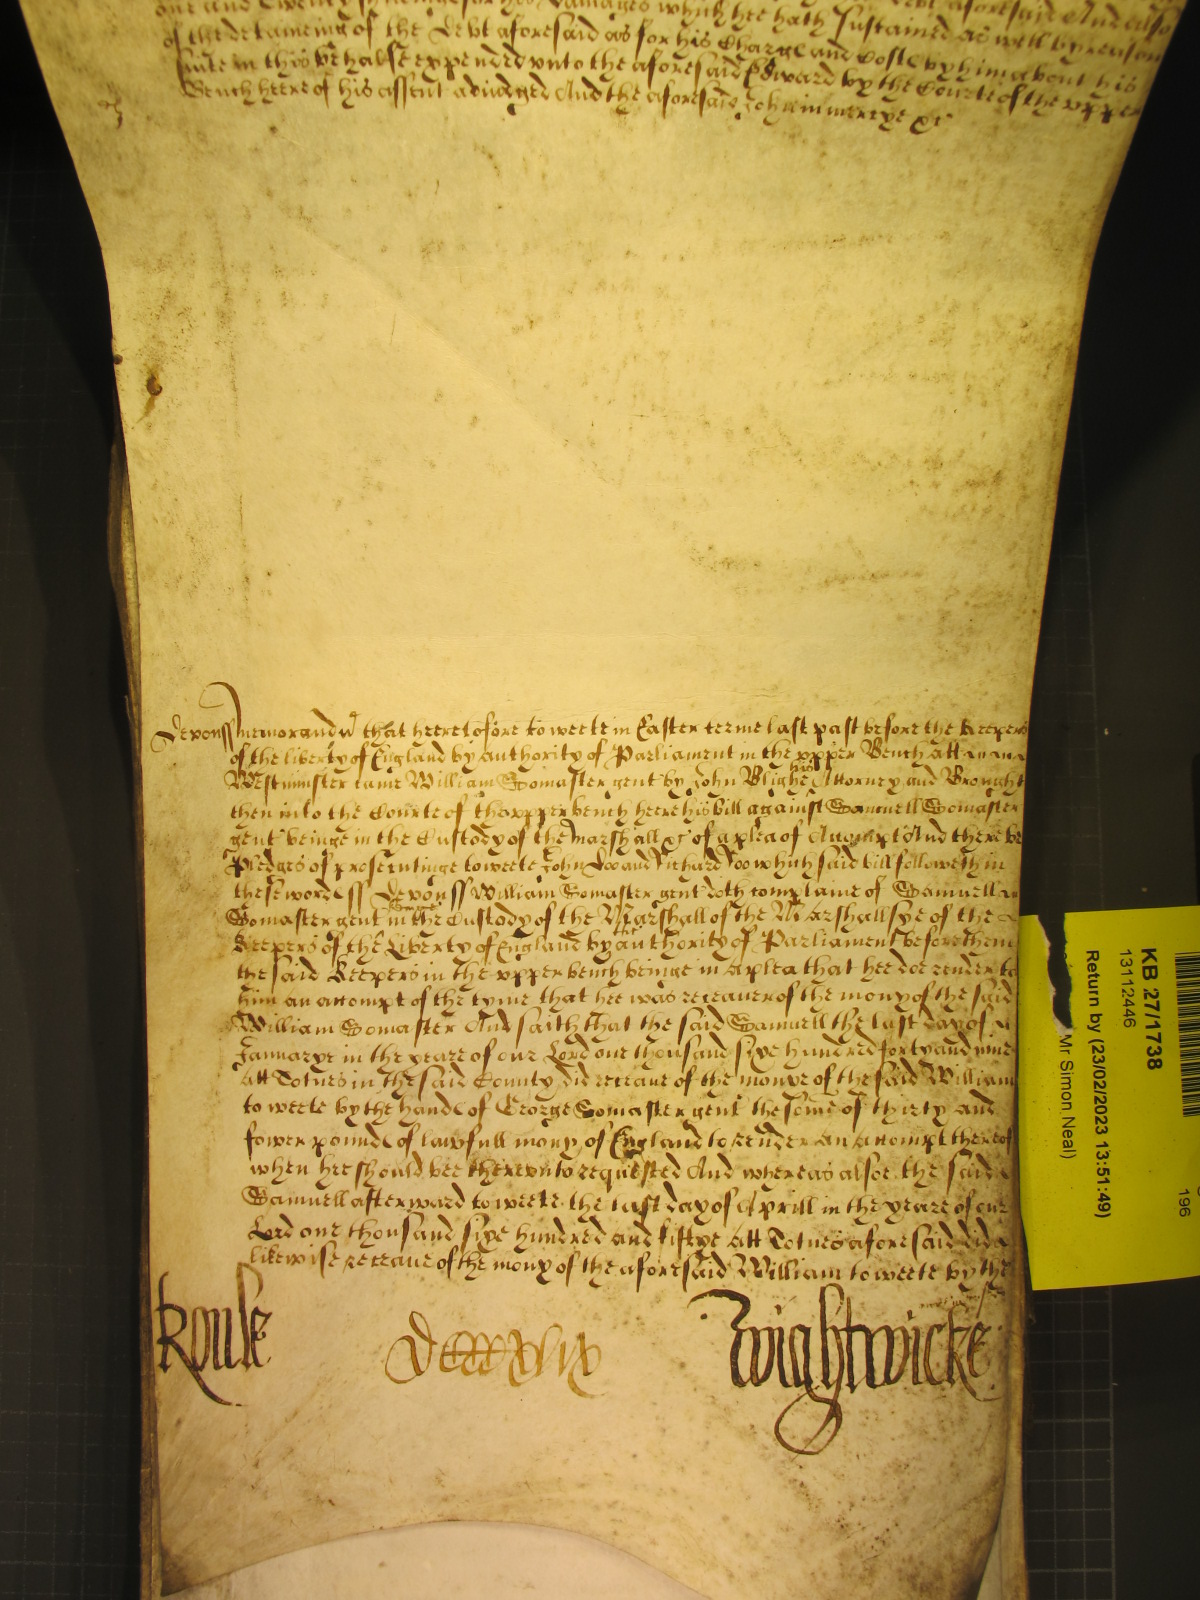 one and Twenty shillings for his damages which hee hath Sustained as well by reason
of the detameing of the Debt aforesaid as for his Charge and Costs by him about his
suite in this behalfe expended unto the aforesaid Edward by the Courte of the upper
Bench heere of his assent adiudged And the aforesaid John in mercye &c
Devonss Memorandu that heeretofore to weete in Easter terme last past before the Keepers
of the liberty of England by authority of Parliament in the upper Bench att
Westminster came William Somaster gent by John Blighe his Attorney and Brought
then into the Courte of the upper bench heere his bill against Samuell Somaster
gent beinge in the Custody of the Marshall &c of a plea of Accompt And there be
Pledges of prosecutinge to weete John Doo and Richard Roo which said bill followeth in
these words ss Devonss William Somaster gent doth complaine of Samuell
Somaster gent in the Custody of the Marshall of the Marshallsye of the
Keepers of the Liberty of England by authority of Parliament before them
the said Keepers in the upper bench beinge in a plea that hee doe render to
him an accompt of the tyme that hee was receaver of the mony of the said
William Somaster And saith that the said Samuell the last day of
Januarye in the yeare of our Lord one thousand sixe hundred forty and nine
Att Totnes in the said County did receave of the monye of the said William
to weete by the hands of George Somaster gent the some of thirty and
fower pounds of lawfull mony of England to render an accompt thereof
when hee should bee thereunto requested And whereas alsoe the said
Samuell afterward to weete the last day of Aprill in the yeare of our
Lord one thousand sixe hundred and fiftye Att Totnes aforesaid did
likewise receave of the mony of the aforesaid William to weete by the
Rouse Dccccxlix Wightwicke
KB 27/1738
13112446
Return by (23/02/2023 13:51:49)
Mr Simon Neal)
196